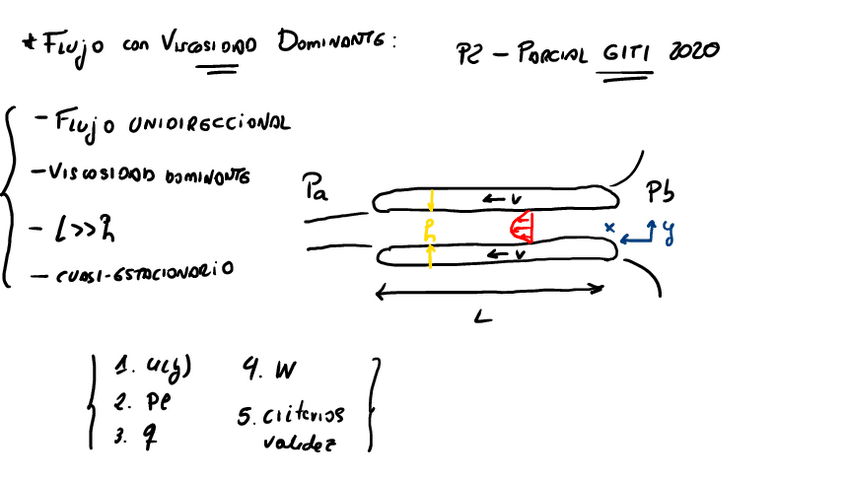 * Flujo con VISCOSIDAD DOMINANTE:
P2 - PARCIAL GITI 2020
- Flujo UNIDIRECCIONAL
- VISCOSIDAD DOMINANTE
- L>>h
- CUASI-ESTACIONARIO
Pa
Pb
v
h
x
y
v
L
1. u(y)
2. Pe
3. q
4. W
5. criterios
validez